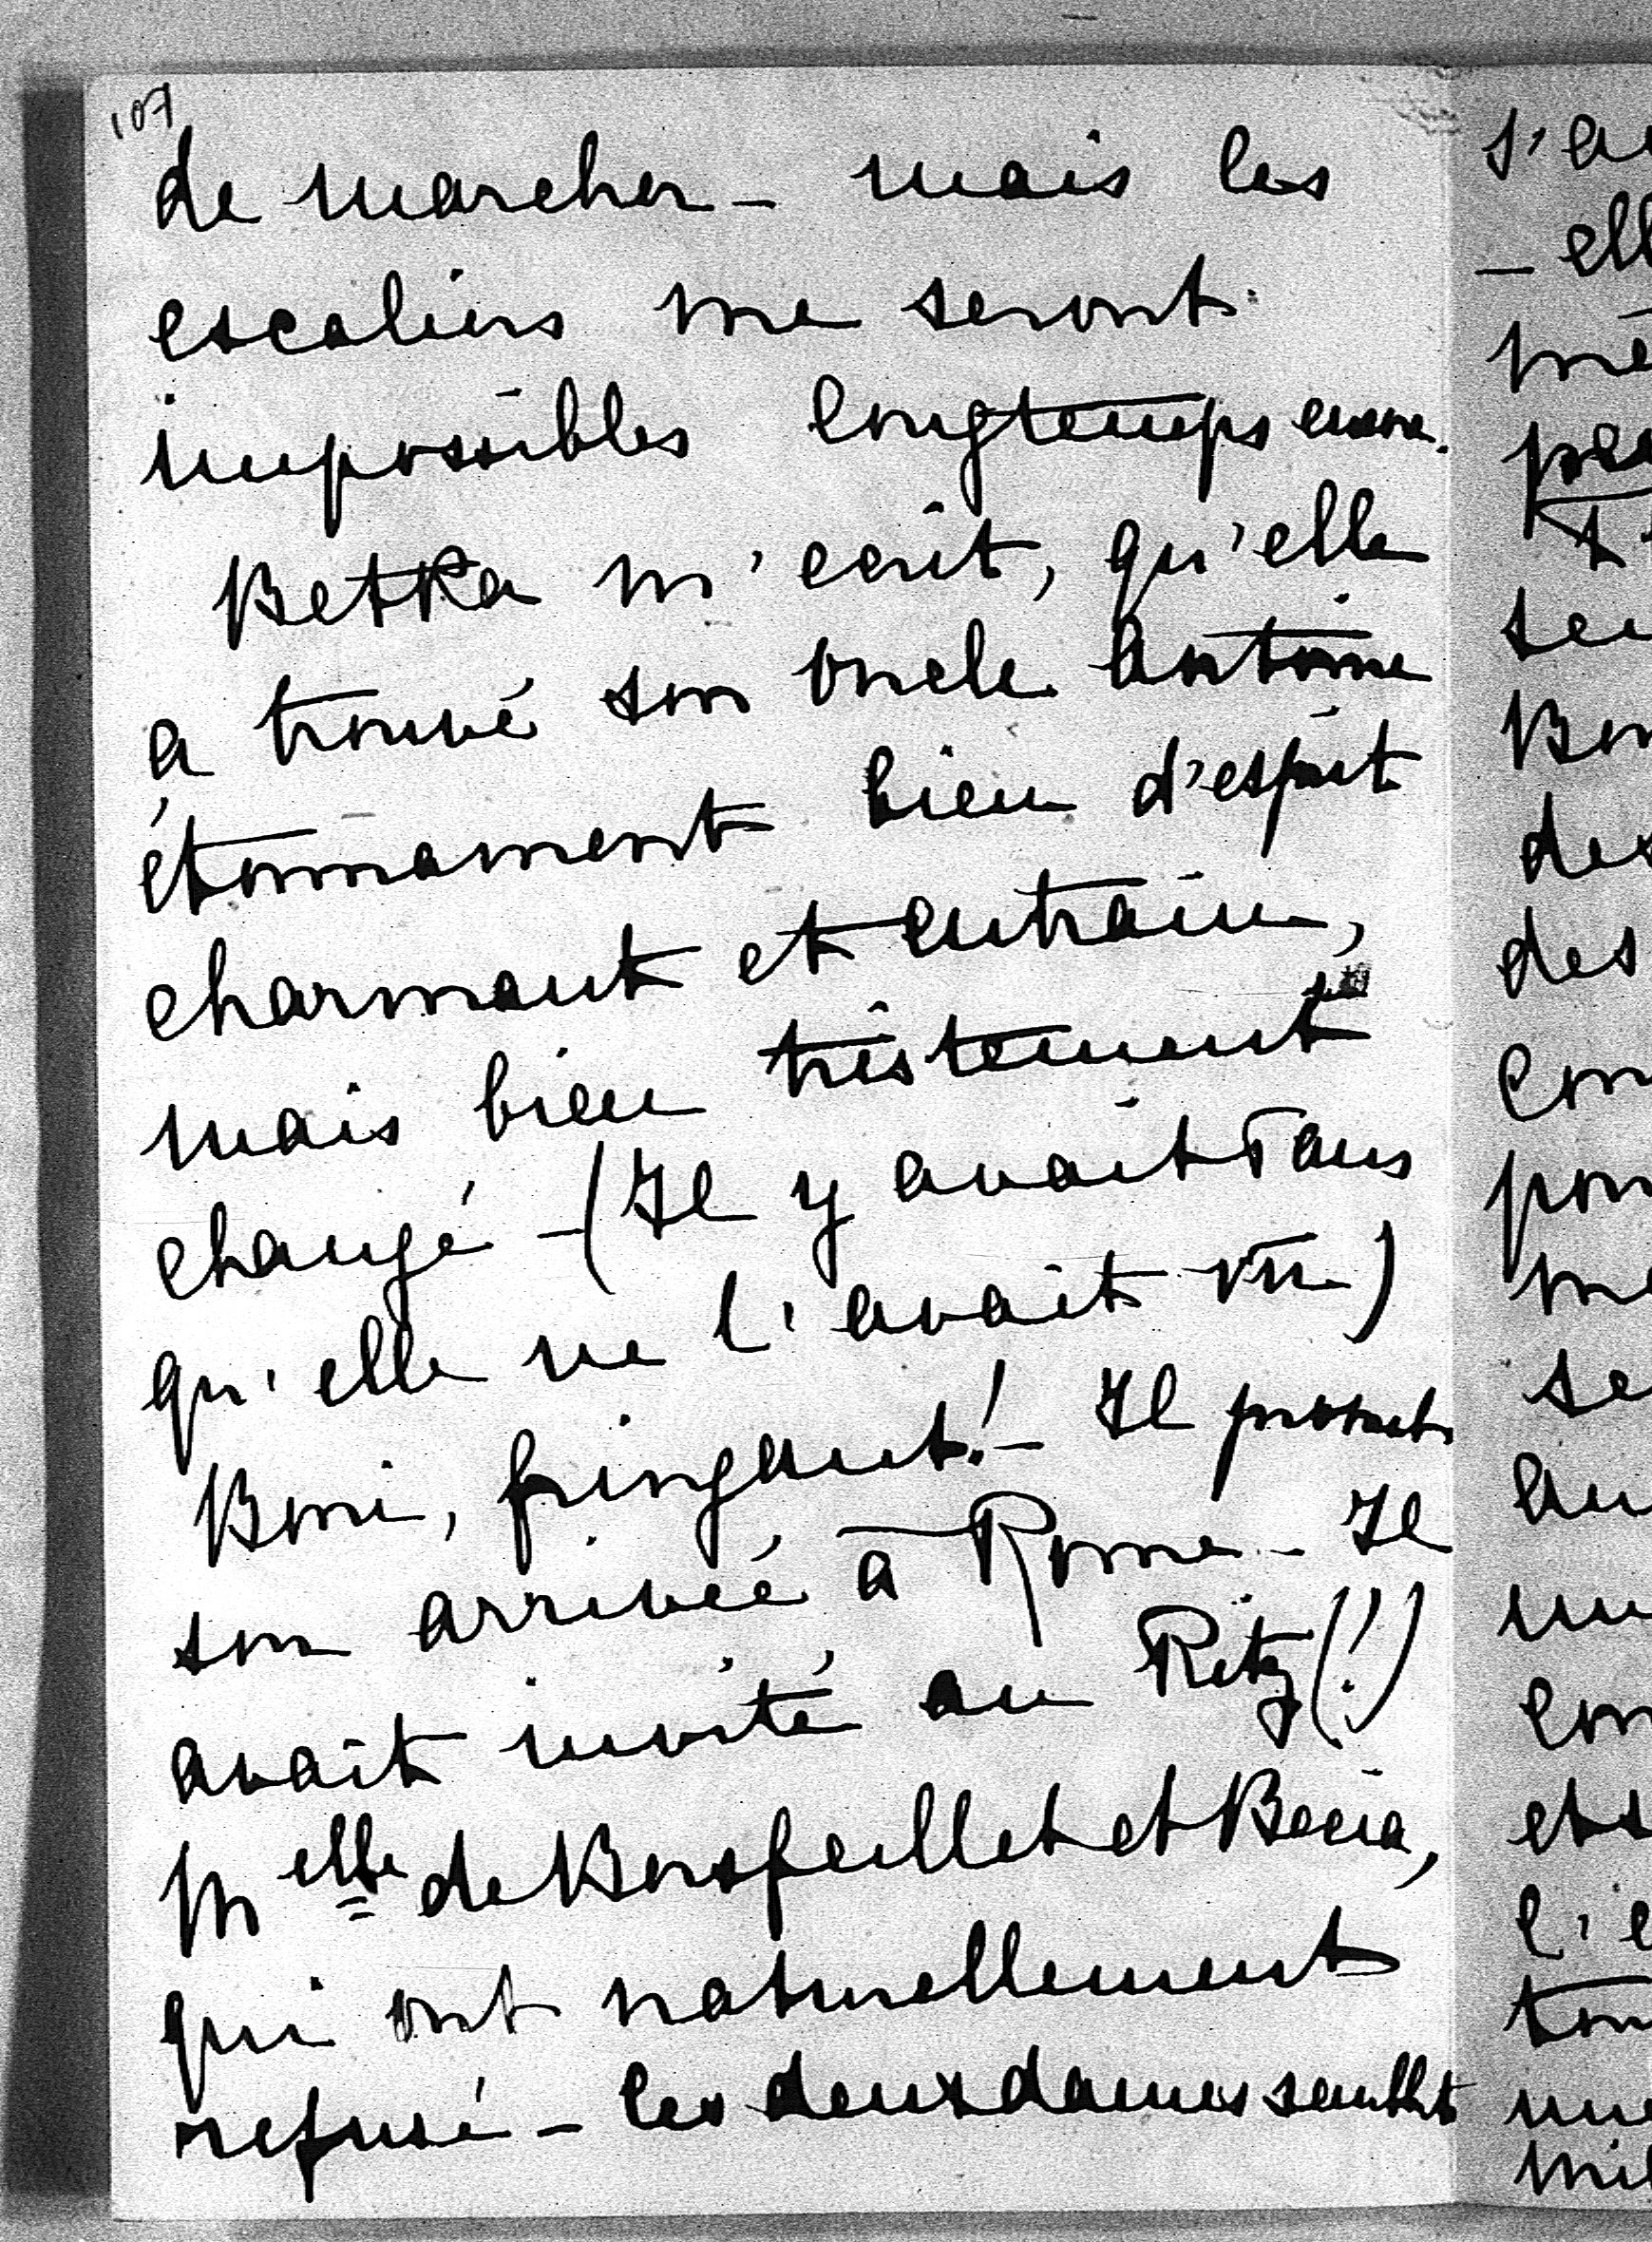 107
de marcher - mais les
escaliers me seront
impossibles longtemps encore.
Betka m'écrit, qu'elle
a trouvé son oncle Antoine
étonnament bien d'esprit
charmant et entrain,
mais bien tristement
changé - (Il y avait 5 ans
qu'elle ne l'avait vu)
Boni, fringant! - Il promet
son arrivée à Rome - Il
avait invité au Ritz (!)
Melle de et
qui ont naturellement
refusé - les deux dames semblent